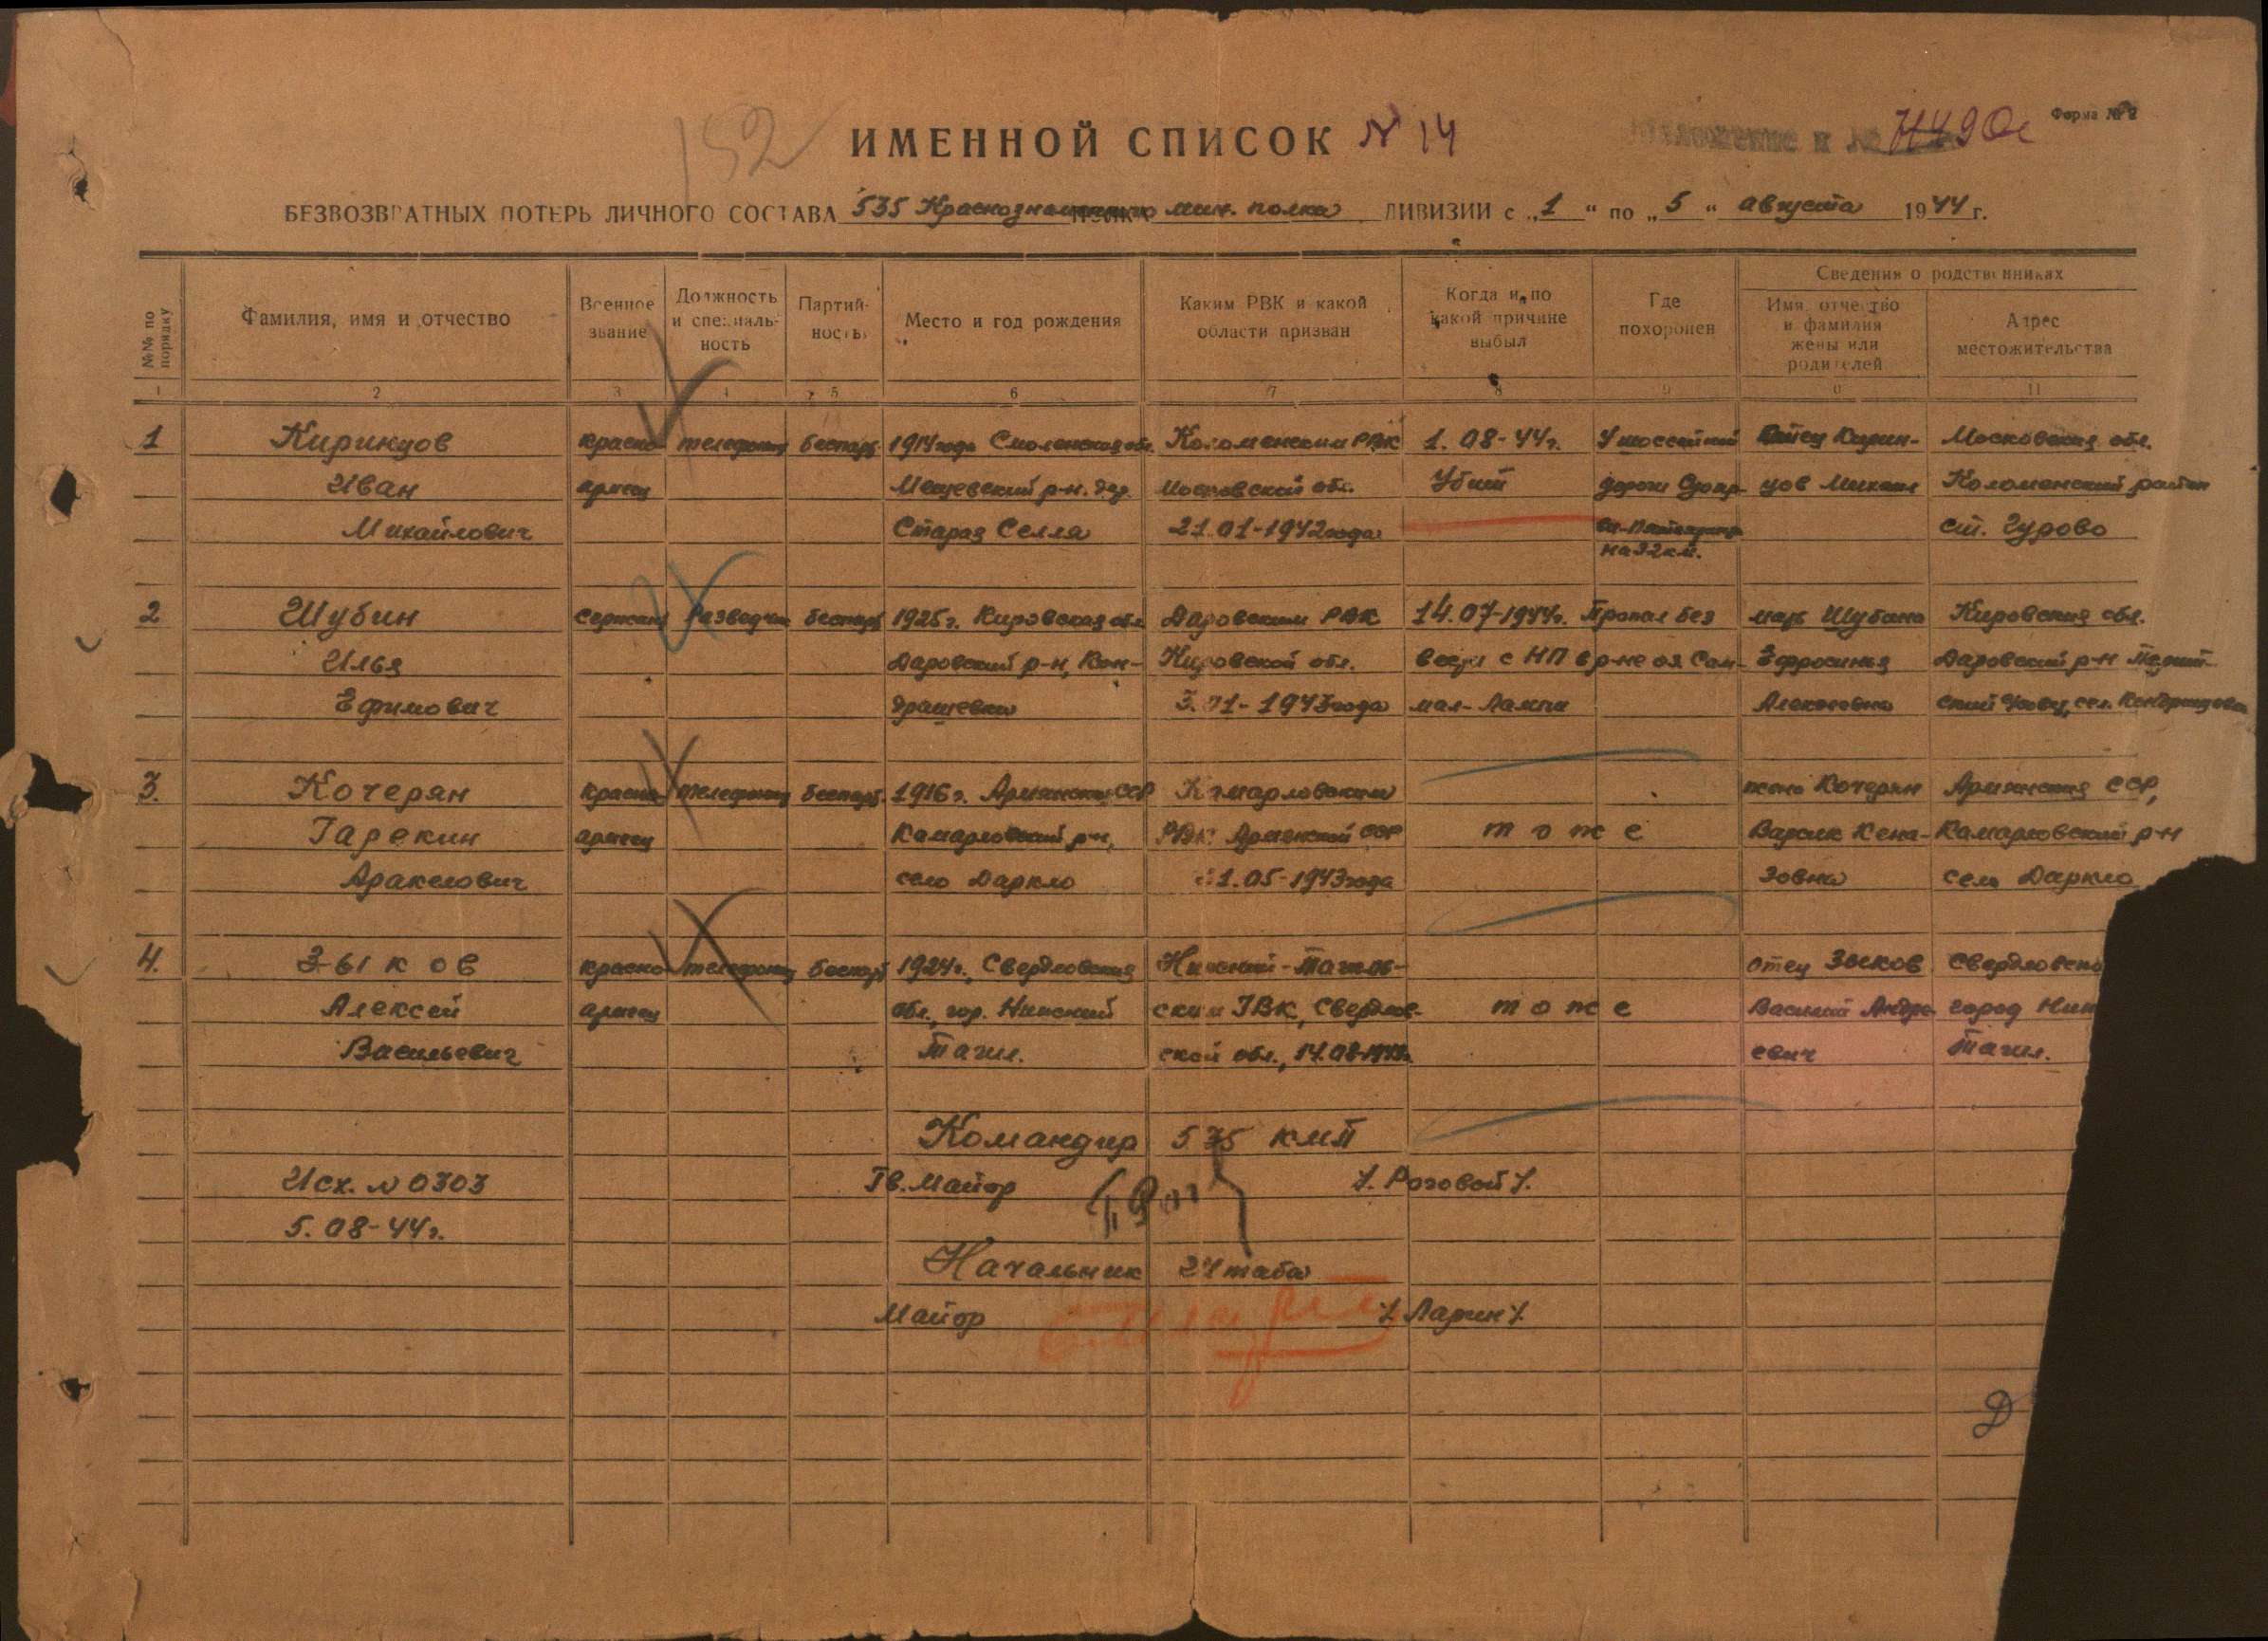 152
ИМЕННОЙ СПИСОК № 14
Форма № 2
БЕЗВОЗВРАТНЫХ ПОТЕРЬ ЛИЧНОГО СОСТАВА 535 Краснознаменного мин. полка ДИВИЗИИ с „1“ по „5“ августа 1944 г.
№№ по порядку
Фамилия, имя и отчество
Военное звание
Должность и специальность
Партийность
Место и год рождения
Каким РВК и какой области призван
Когда и по какой причине выбыл
Где похоронен
Сведения о родственниках
Имя, отчество и фамилия жены или родителей
Адрес местожительства
1 2 3 4 5 6 7 8 9 11
1 Киринцов красно- телефонист беспарт. 1914 года Смоленская обл. Коломенским РВК 1.08-44г. У шоссейной Кирин- Московская обл.
Иван армеец Мещевский р-н. дер. Московской обл. Убит дороги цов Михаил Коломенский район
Михайлович Старая Селля 21.01-1942 года ст. Гурово
на 32 км.
2 Шубин Сержант Разведчик беспарт 1925г. Кировская обл. Даровским РВК 14.07-1944г. Пропал без мать Шубина Кировская обл.
Илья Даровский р-н, Кон- Кировской обл. вести с НП в р-не Сам- Ефросинья Даровский р-н
Ефимович драшевка 3.01-1943 года мал-Лампи Алексеевна
3. Кочерян красно- телефонист беспарт. 1916г. Армянская ССР Камарловским жена Кочерян Армянская ССР,
Гарекин армеец Камарловский р-н, РВК Армянской ССР тоже Варсик Кена- Камарловский р-н
Аракелович село Даркло 21.05-1943 года зовна село Даркло
4. Зыков красно- телефонист беспарт 1924г. Свердловская Нижний-Тагиль- отец Зыков Свердловско
Алексей армеец обл., гор. Нижний ским ГВК, Свердлов- тоже Василий Андре- город Ниж
Васильевич Тагил. ской обл., 14.08-1942г. евич Тагил.
Командир 535 КМП
Исх. № 0303 Гв. Майор /. Роговой /.
5.08-44г.
Начальник Штаба
Майор /. Ларин /.